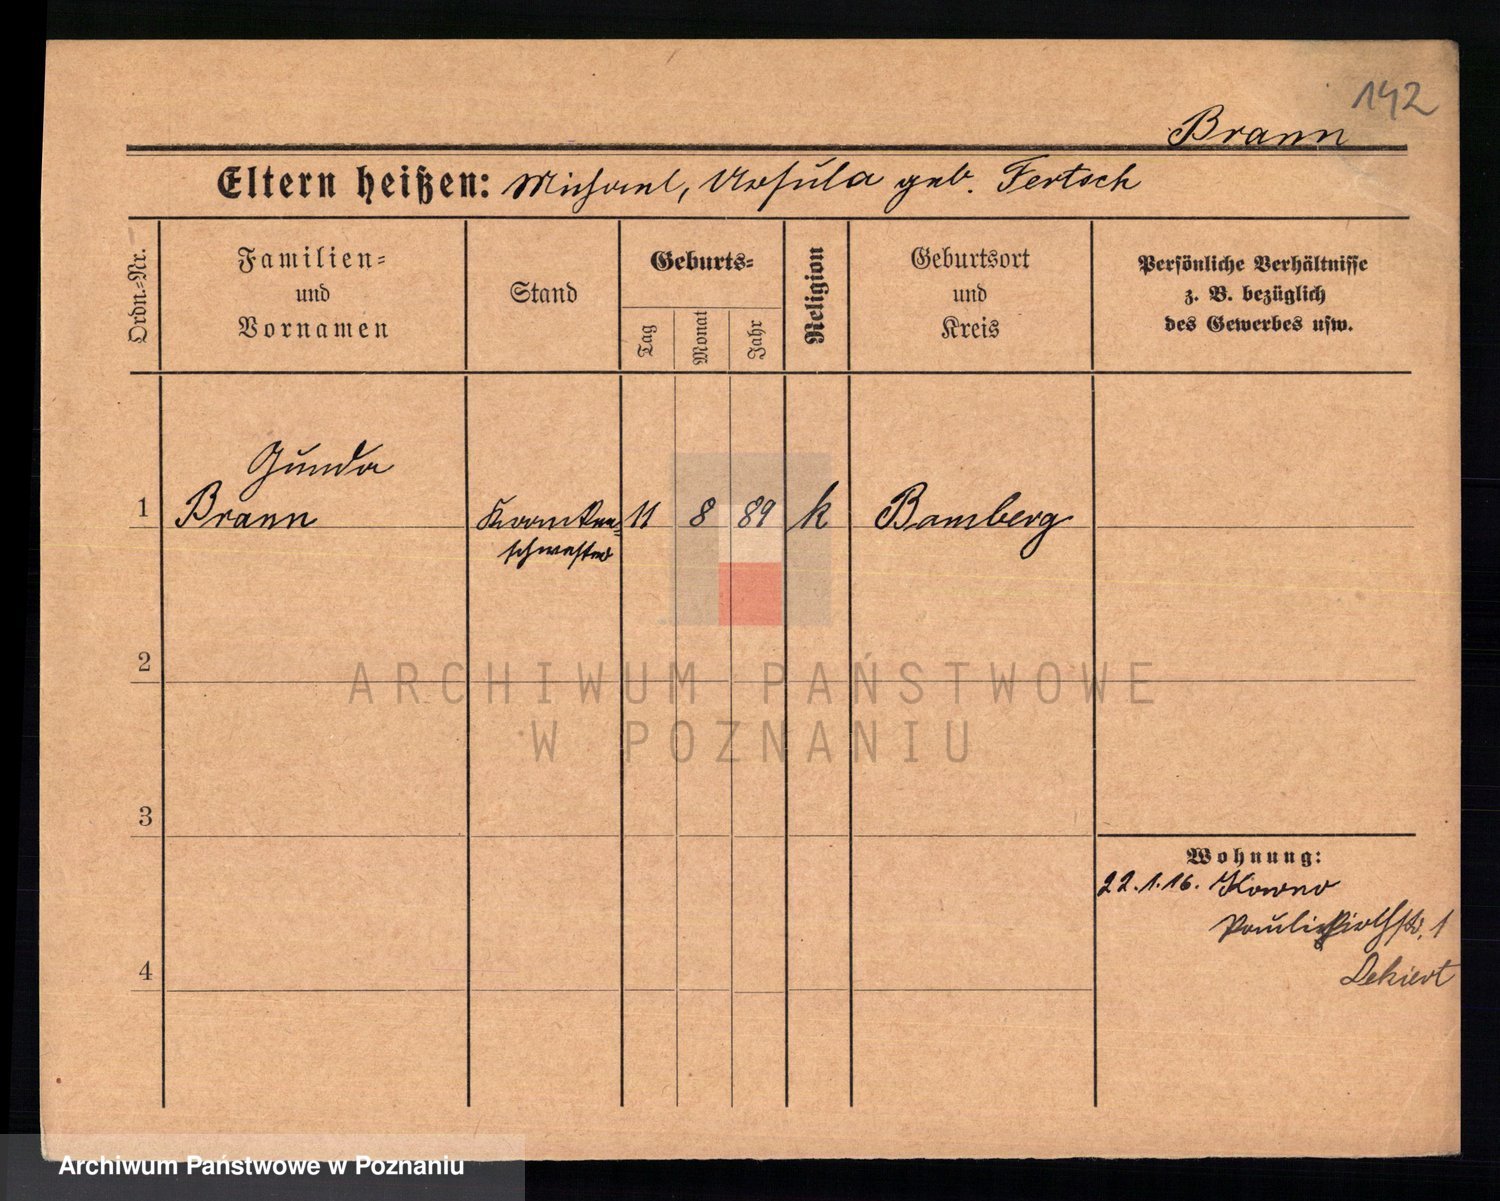 142
Brann
Eltern heißen: Michael, Ursula geb. Fertsch
Ordn.=Nr.
Familien=
und
Vornamen
Stand
Geburts=
Tag
Monat
Jahr
Religion
Geburtsort
und
Kreis
Persönliche Verhältnisse
z. B. bezüglich
des Gewerbes usw.
Gunda
1 Brann Kranken= 11 8 89 k Bamberg
schwester
2
ARCHIWUM PAŃSTWOWE
W POZNANIU
3
Wohnung:
22.1.16. Kowno
1
4
Dekiert
Archiwum Państwowe w Poznaniu